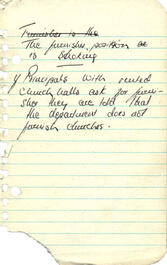 Furnisher is the
The furnisher position as
is blocking
If Principals with rented
church halls ask for furni-
sher they are told that
the department does not
furnish churches.